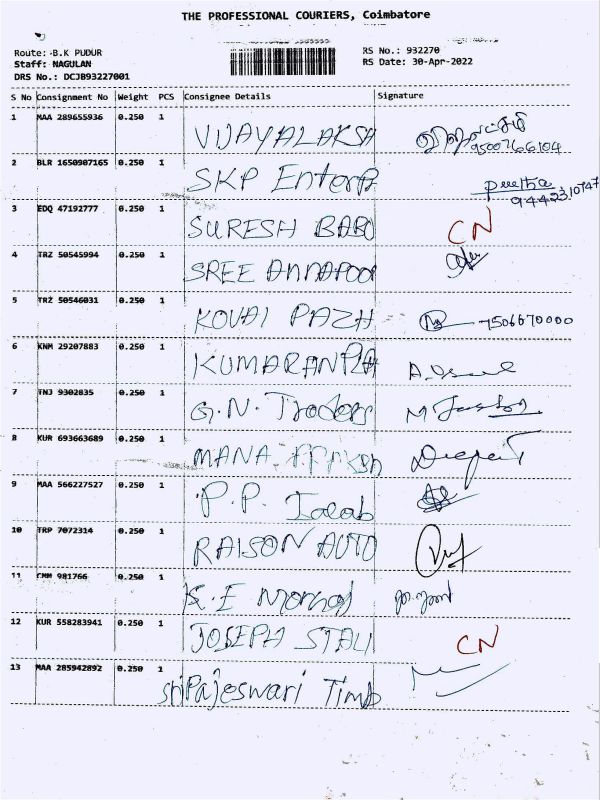 THE PROFESSIONAL COURIERS, Coimbatore
Route: B.K PUDUR
Staff: NAGULAN
DRS No.: DCJB93227001
RS No.: 932270
RS Date: 30-Apr-2022
S No Consignment No Weight PCS Consignee Details Signature
1 MAA 289655936 0.250 1 VIJAYALAKSH
9500766104
2 BLR 1650907165 0.250 1 SKP Enterp
9442310747
3 EDQ 47192777 0.250 1 SURESH BABU CN
4 TRZ 50545994 0.250 1 SREE ANNAPOO
5 TRZ 50546031 0.250 1 KOVAI PAZH 7506670000
6 KNM 29207883 0.250 1 KUMARAN
7 TNJ 9302835 0.250 1 G.N. Traders
8 KUR 693663689 0.250 1 MANA
9 MAA 566227527 0.250 1 P.P. Jacob
10 TRP 7072314 0.250 1 RAISON AUTO
11 CMM 981766 0.250 1 K.E
12 KUR 558283941 0.250 1 JOSEPH STALI CN
13 MAA 285942892 0.250 1 Sri Rajeswari Timb